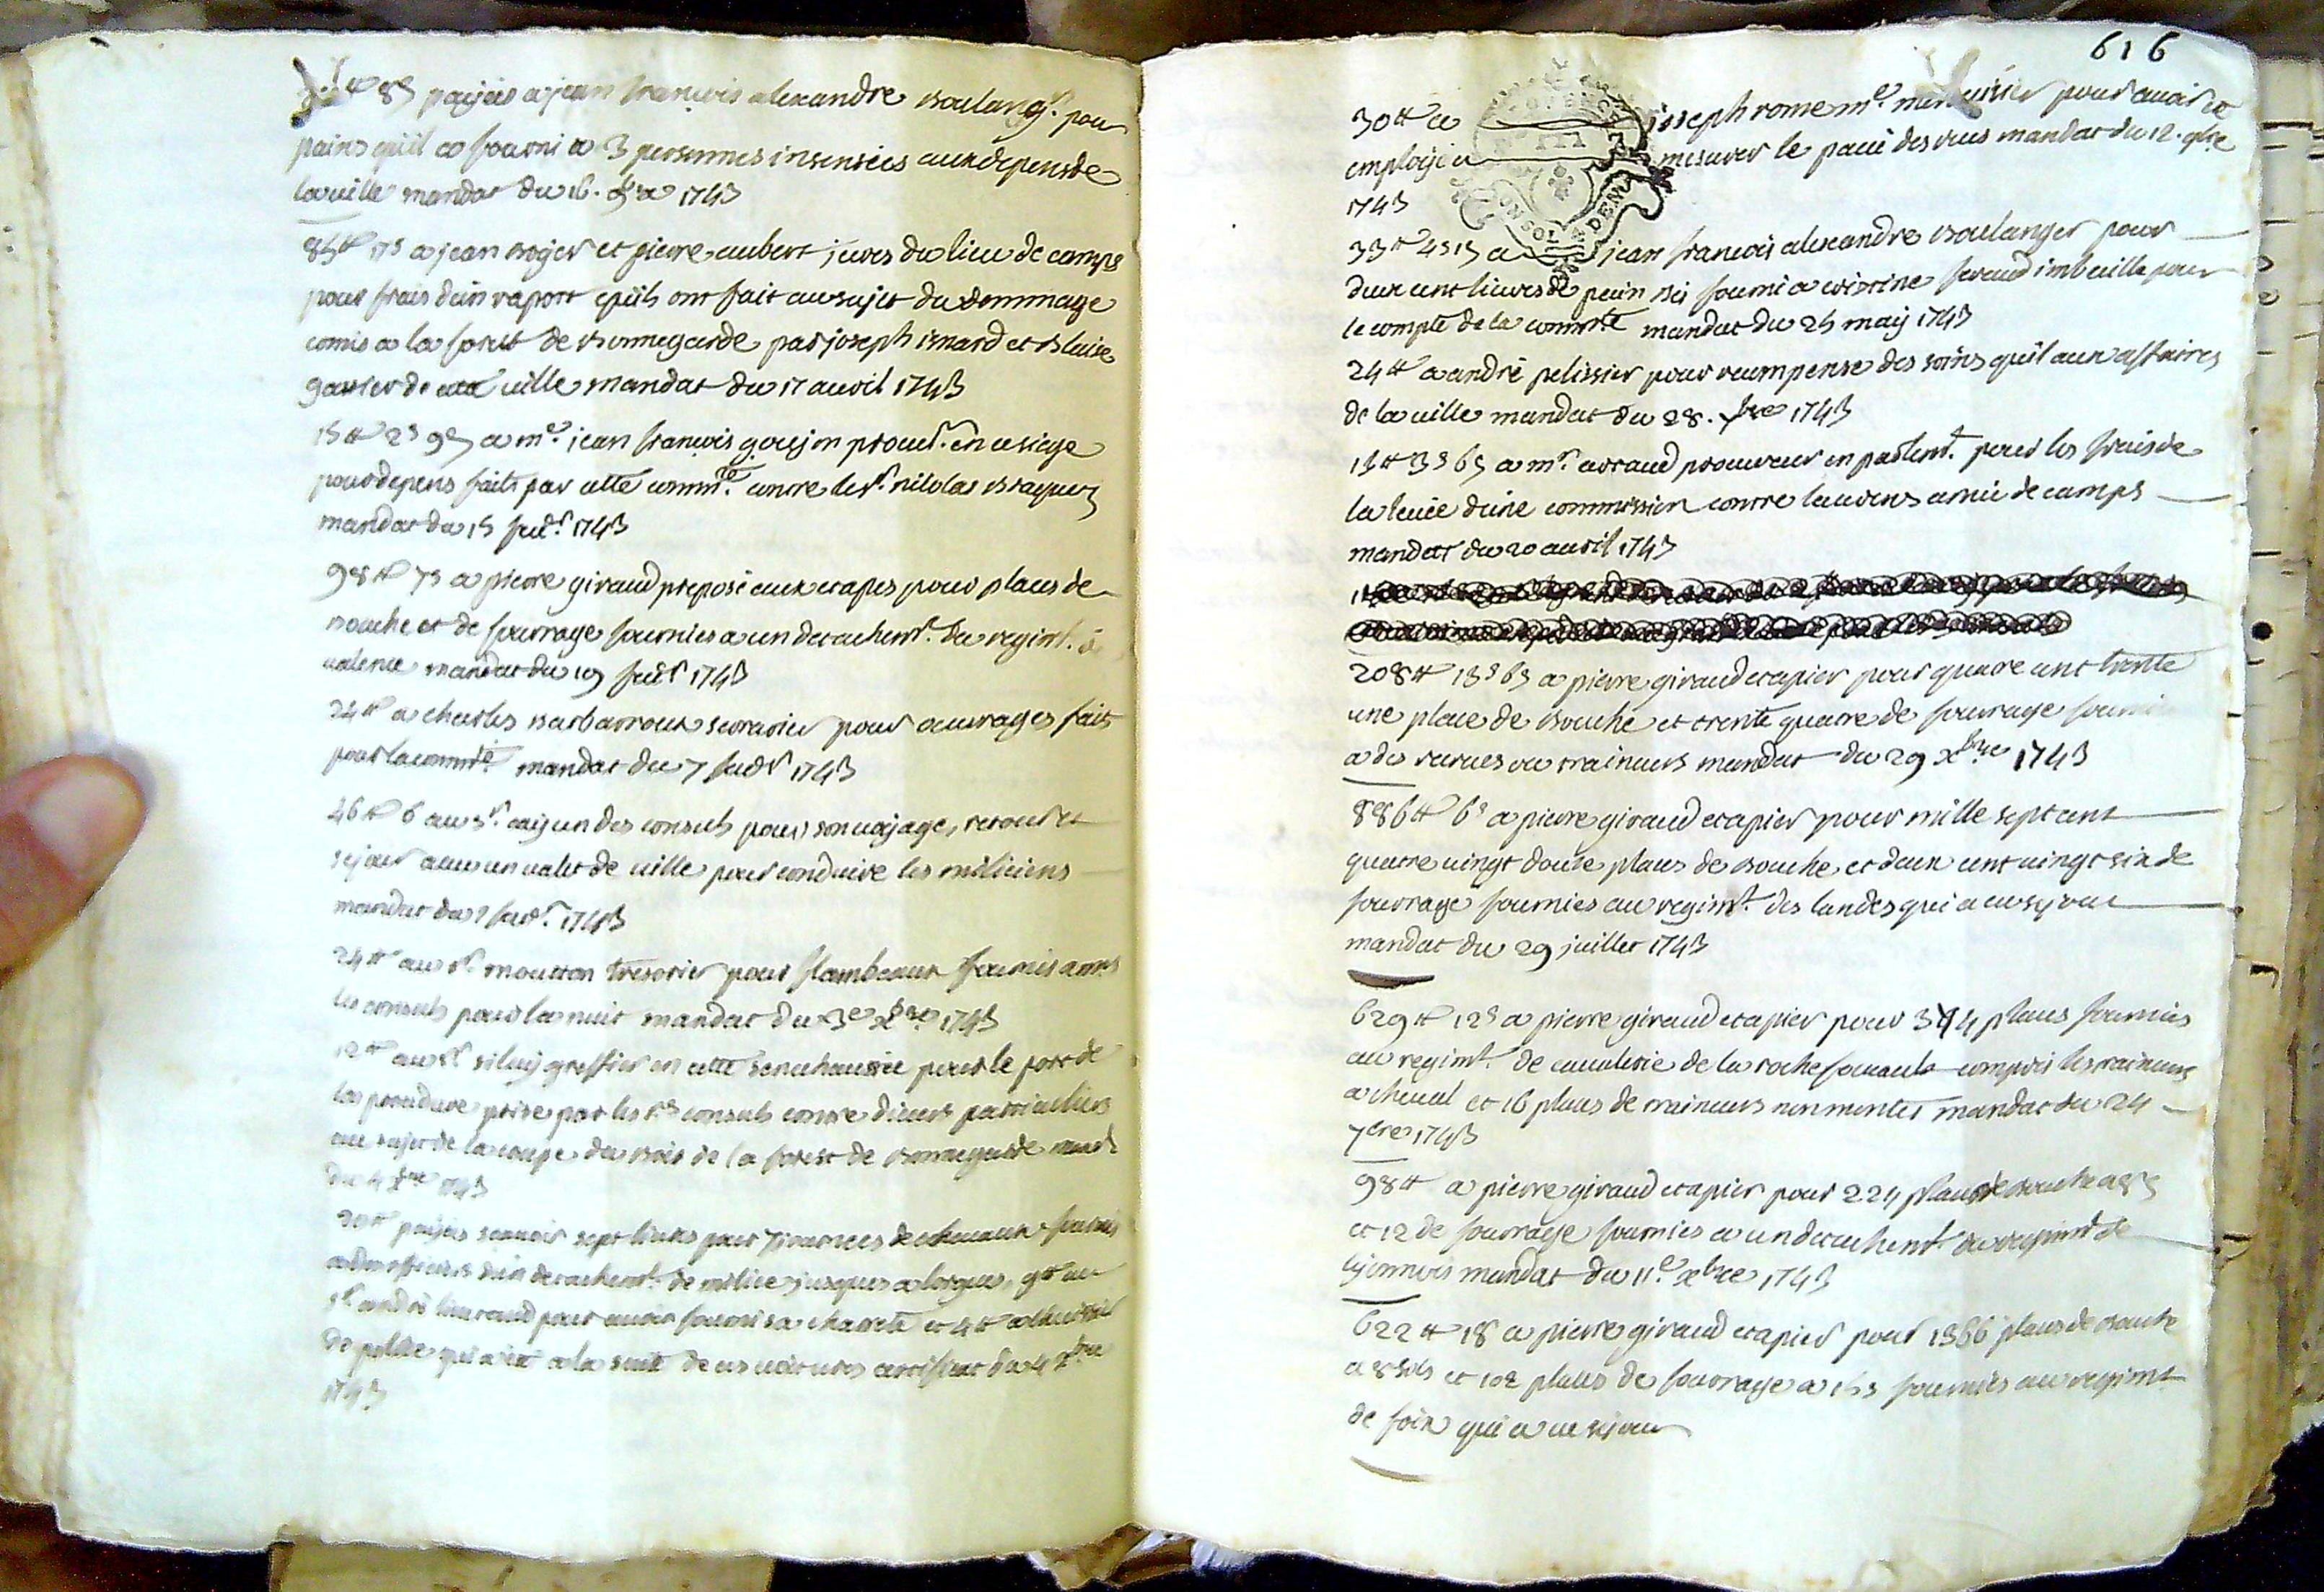 8s payées a jean francois alexandre boulangr. pour
pains quil a fourni a 3 personnes insensées aux depens de
la ville mandat du 16. xbre 1743
85tt 17s a jean boyer et pierre aubert jures du lieu de camps
pour frais dun raport quils ont fait au sujet du dommage
comis a la forest de bonnegarde par joseph isnard et blaise
garier de cette ville mandat du 17 avril 1743
15tt 2s 9d a me. jean francois goujon procur. en ce siege
pour depens faits par cette commte. contre le sr. nicolas braquez
mandat du 15 1743
98tt 7s a pierre giraud preposé aux etapes pour places de
bouche et de fourrage fournies a un detachemt. du regimt. de
valence mandat du 19 1743
24tt a charles barbarroux serrurier pour ouvrages faits
pour la commté mandat du 7 1743
46tt 6 au sr. cay un des consuls pour son voyage, retour et
sejour avec un valet de ville pour conduire les miliciens
mandat du 1743
24tt au sr. moutton tresorier pour flambeaux fournis a mrs
les consuls pour la nuit mandat du 3e xbre 1743
12tt au sr siluy greffier en cette senechaussée pour le port de
la procedure prise par les srs consuls contre divers particuliers
au sujet de la coupe du bois de la forest de bonnegarde mandt
du 4 xbre 1743
20tt payées scavoir sept livres pour 7 journees de chevaux fournis
a des officiers dun detachemt. de milice jusques a lorgues, 9tt au
sr andré pour avoir fourni sa charrete et 4tt a
de police qui a eté a la suite de ces voitures certificat du 4 xbre
1743
616
30tt a joseph rome me. menuisier pour avoir eté
employé a mesurer le pavé des rues mandat du 12. 9bre
1743
33tt 4s 15 a jean francois alexandre boulanger pour
deux cent livres de pain bis fourni a cristine feraud imbecille pour
le compte de la commté mandat du 25 may 1743
24tt a andré pelissier pour recompense des soins quil aux affaires
de la ville mandat du 28. xbre 1743
15tt 3s 6d a mr. arnaud procureur en parlemt. pour les frais de
la levée dune commission contre laurens de camps
mandat du 20 avril 1743
208tt 13s 6d a pierre giraud etapier pour quatre cent trente
une place de bouche et trente quatre de fourrage fournies
a des recrues ou traineurs mandat du 29 xbre 1743
886tt 6s a pierre giraud etapier pour mille sept cent
quatre vingt douse places de bouche et deux cent vingt six de
fourrage fournies au regimt. des landes qui a eu sejour
mandat du 29 juillet 1743
629tt 12s a pierre giraud etapier pour 374 places fournies
au regimt. de cavalerie de la rochefoucault compris les traineurs
a cheval et 16 places de traineurs non montés mandat du 24
7bre 1743
98tt a pierre giraud etapier pour 224 places de bouche a 8s
et 12 de fourrage fournies a un detachemt du regimt de
lyonnois mandat du 11e. xbre 1743
622tt 18 a pierre giraud etapier pour 1366 places de bouche
a 8 sols et 102 places de fourrage a 15s fournies au regimt
de foix qui a eu sejour